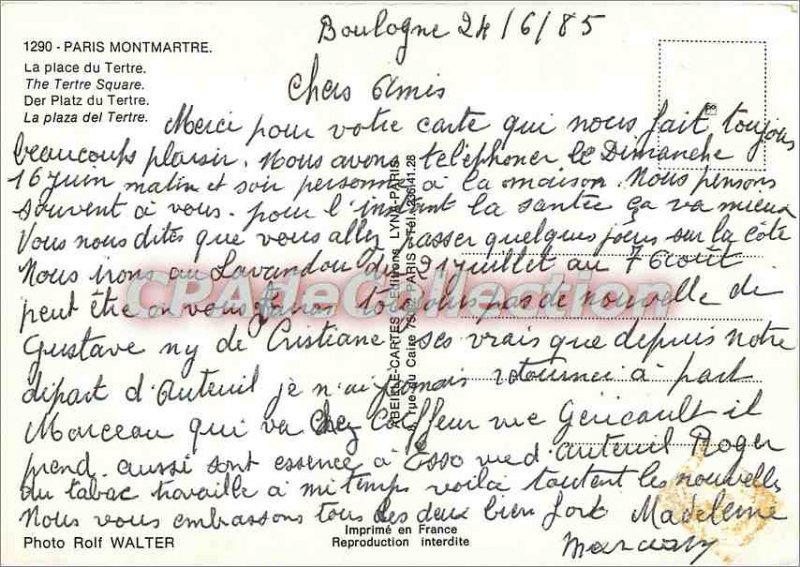 Boulogne 24/6/85
1290 - PARIS MONTMARTRE.
La place du Tertre.
The Tertre Square.
Der Platz du Tertre.
La plaza del Tertre.
Chers Amis
Merci pour votre carte qui nous fait toujours
beaucoups plaisir. Nous avons telephoner le Dimanche
16 juin matin et soir personne à la maison. Nous pensons
souvent à vous. pour l'instant la santée ça va mieux
Vous nous dites que vous allez passer quelques jours sur la côte
Nous irons au Lavandou du 21 juillet au 7 Août
peut être on vous pas de nouvelle de
Gustave ny de Cristiane ses vrais que depuis notre
départ d'Auteuil je n'ai jamais retournei à part
Marceau qui va chez Coiffeur rue Gericault il
prend aussi sont essence à Esso rue d'auteuil Roger
du tabac travaille à mi temps voilà toutent les nouvelles
Nous vous embrassons tous les deux bien fort Madeleine
Photo Rolf WALTER
Imprimé en France
Reproduction interdite
LYNA-PARIS
rue du Caire PARIS Tél. 236.41.28
CPAdeCollection